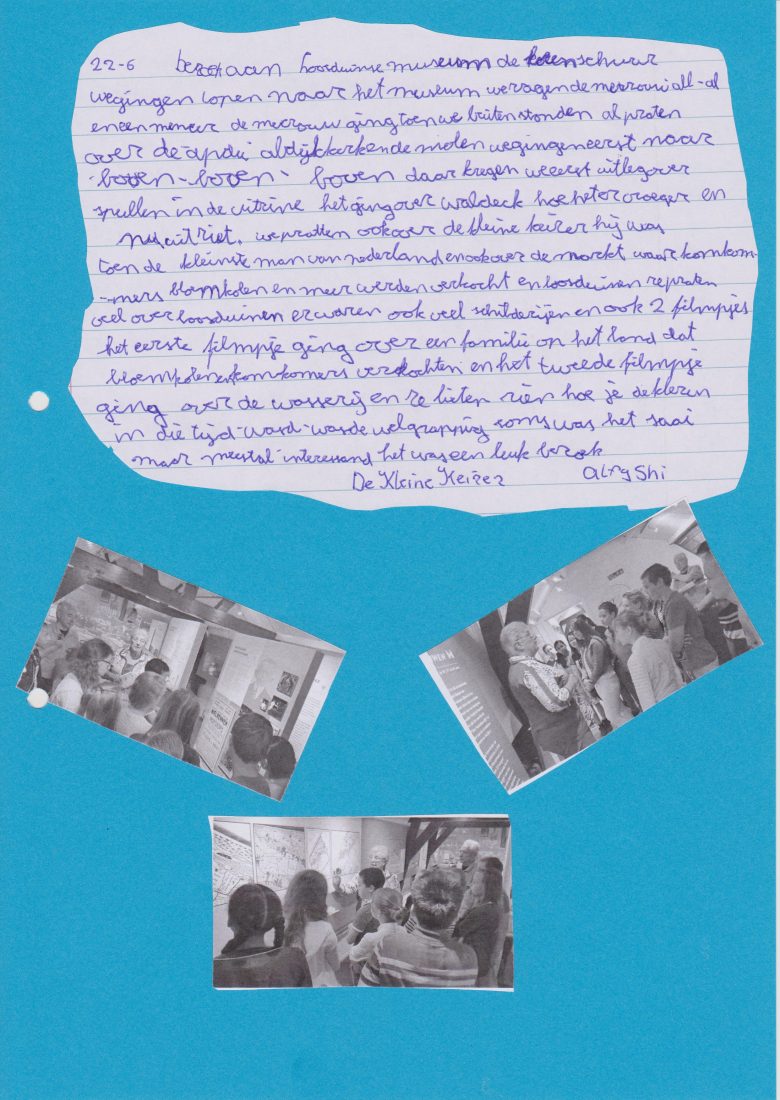 22-6 bezoek aan loosduinse museum de korenschuur
wegingen lopen naar het museum we zagen de mevrouw al
en een meneer de mevrouw ging toen we buiten stonden al praten
over de abdij altijd kerk en de molen wegingen eerst naar
boven-boven- boven daar kregen we eerst uitleg over
spullen in de vitrine het ging over waldeck hoe het er vroeger en
nu uit ziet. we praatten ook over de kleine keizer hij was
toen de kleinste man van nederland en ook over de markt waar komkom-
-mers bloemkolen en meer werden verkocht en loosduinen ze praten
veel over loosduinen er waren ook veel schilderijen en ook 2 filmpjes
het eerste filmpje ging over een familie op het land dat
bloemkolen en komkomers verkochten en het tweede filmpje
ging over de wasserij en ze lieten zien hoe je de kleren
in die tijd wasde wel grappig soms was het saai
maar meestal interessand het was een leuk bezoek
De Kleine Keizer